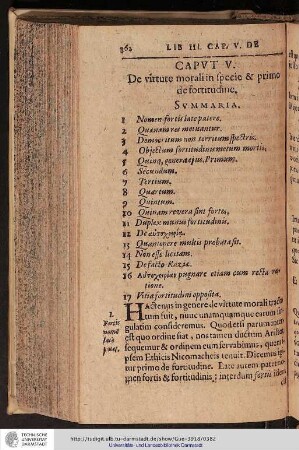 362 LIB III. CAP. V. DE
CAPVT V.
De virtute morali in specie & primo
de fortitudine.
SVMMARIA.
1 Nomen fortis late patere.
2 Quænam res metuantur.
3 Democritum non territum spectris.
4 Objectum fortitudinis metum mortis,
5 Quinq, genera ejus. Primum.
6 Secundum.
7 Tertium.
8 Quartum.
9 Quintum.
10 Quinam revera sint fortes,
11 Duplex munus fortitudinis.
12 De αὐτοχειρίᾳ.
13 Quantopere multis probata sit.
14 Non esse licitam.
15 De facto Raziæ.
16 Αὐτοχειρίας pugnare etiam cum recta ra-
tione.
17 Vitia fortitudini opposita.
1.
Fortis
nomen
late
patet,
HActenus in genere de virtute morali tracta
tum fuit, nunc unamquamque earum
gulatim consideremus. Quod etsi parum
est quo ordine fiat, nos tamen ductum Arist
sequemur & ordinem eum servabimus, quem
ipsem Ethicis Nicomacheis tenuit. Dicemus igi-
tur primo de fortitudine. Late autem patet
men fortis & fortitudinis; interdum fortis idem
TECHNISCHE
UNIVERSITÄT
DARMSTADT
http://tudigit.ulb.tu-darmstadt.de/show/Gue-3918/0382
Universitäts- und Landesbibliothek Darmstadt